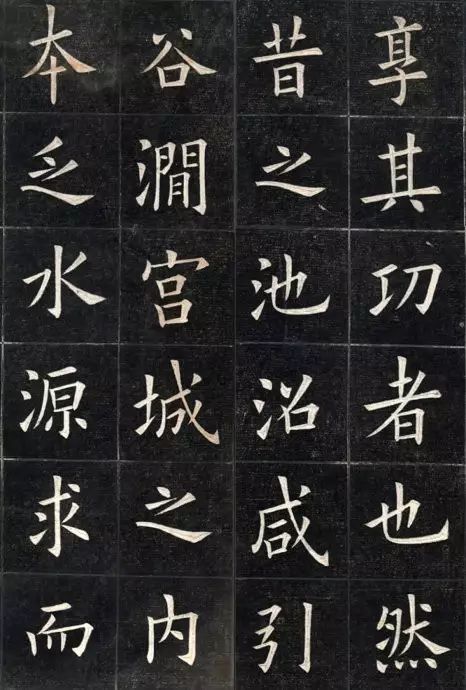 享其功者也然
昔之池沼咸引
谷澗宮城之内
本乏水源求而